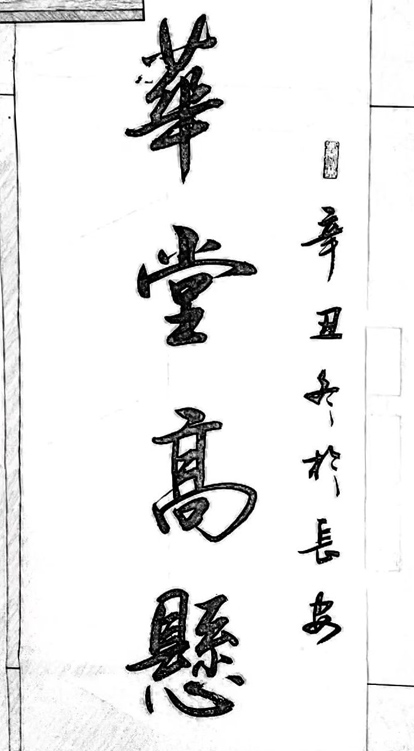 辛丑冬於長安
華堂高懸